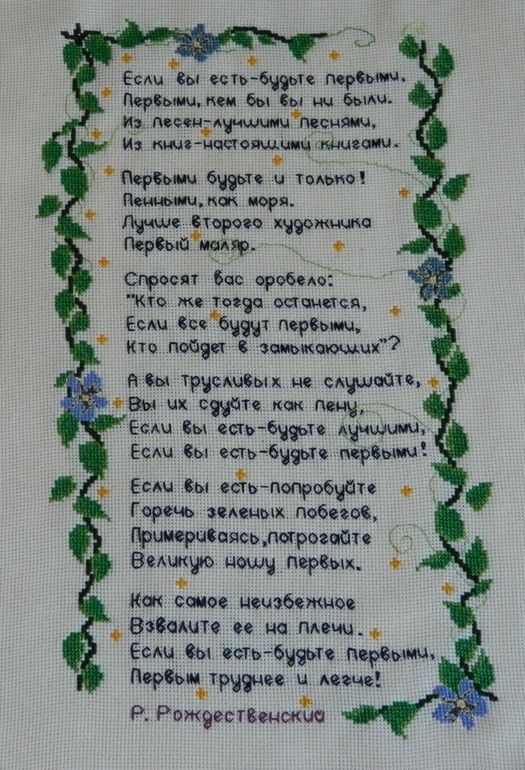 Если вы есть-будьте первыми,
Первыми, кем бы вы ни были.
Из песен-лучшими песнями,
Из книг-настоящими книгами.
Первыми будьте и только!
Пенными, как моря.
Лучше второго художника
Первый маляр.
Спросят вас оробело:
"Кто же тогда останется,
Если все будут первыми,
Кто пойдет в замыкающих"?
А вы трусливых не слушайте,
Вы их сдуйте как пену,
Если вы есть-будьте лучшими,
Если вы есть-будьте первыми!
Если вы есть-попробуйте
Горечь зеленых побегов,
Примериваясь, потрогайте
Великую ношу первых.
Как самое неизбежное
Взвалите ее на плечи.
Если вы есть-будьте первыми,
Первым труднее и легче!
Р. Рождественский